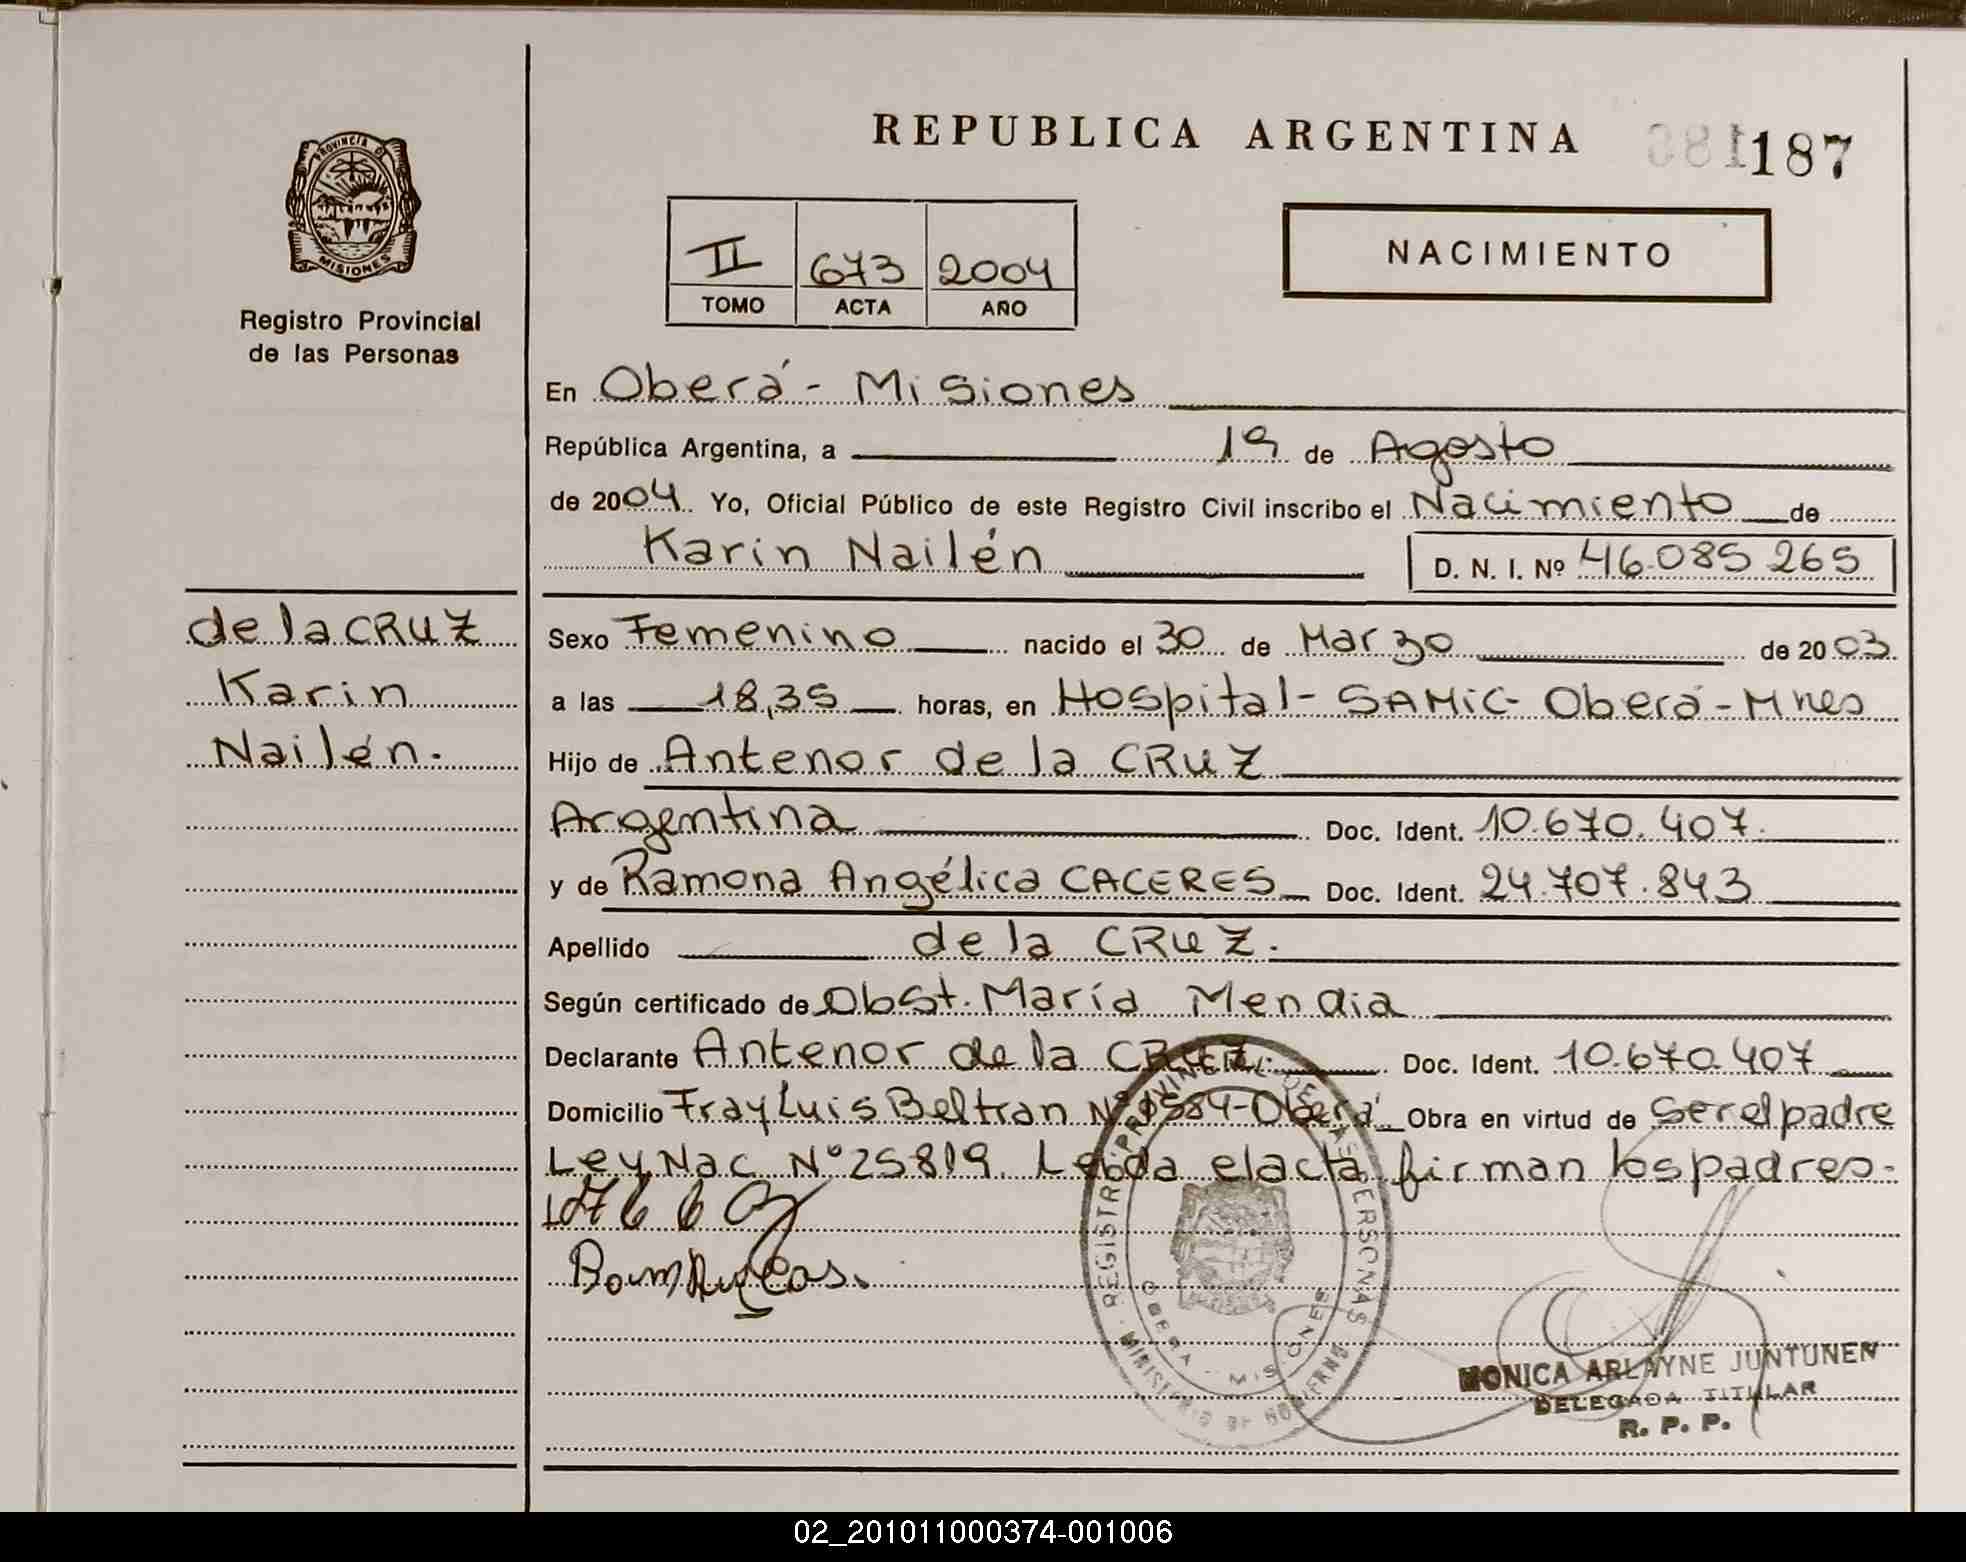 REPUBLICA ARGENTINA
081187
PROVINCIA D
MISIONES
Registro Provincial
de las Personas
II 673 2004
TOMO ACTA AÑO
NACIMIENTO
En Oberá - Misiones
República Argentina, a 19 de Agosto
de 2004. Yo, Oficial Público de este Registro Civil inscribo el Nacimiento de
Karin Nailén D. N. I. Nº 46.085 265
de la CRUZ
Karin
Nailén.
Sexo Femenino nacido el 30 de Marzo de 2003
a las 18,35 horas, en Hospital - SAMIC - Oberá - Mnes
Hijo de Antenor de la CRUZ
Argentina Doc. Ident. 10.670.407.
y de Ramona Angélica CACERES Doc. Ident. 24.707.843
Apellido de la CRUZ.
Según certificado de Obst. María Mendia
Declarante Antenor de la CRUZ. Doc. Ident. 10.670.407
Domicilio Fray Luis Beltran Nº 1584 - Oberá Obra en virtud de Ser el padre
Ley Nac Nº 25819. Leída el acta firman los padres.
REGISTRO PROVINCIAL DE LAS PERSONAS
OBERA - MISIONES
MINISTERIO DE GOBIERNO
MONICA ARLAYNE JUNTUNEN
DELEGADA TITULAR
R. P. P.
02_201011000374-001006